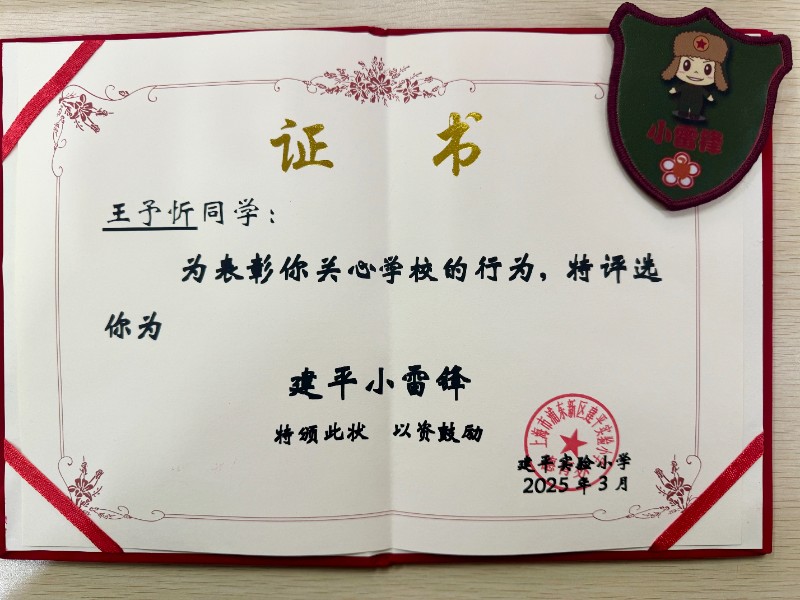 证 书
小雷锋
王予忻同学:
为表彰你关心学校的行为,特评选
你为
建平小雷锋
特颁此状 以资鼓励
上海市浦东新区建平实验小学
建平实验小学
2025年3月